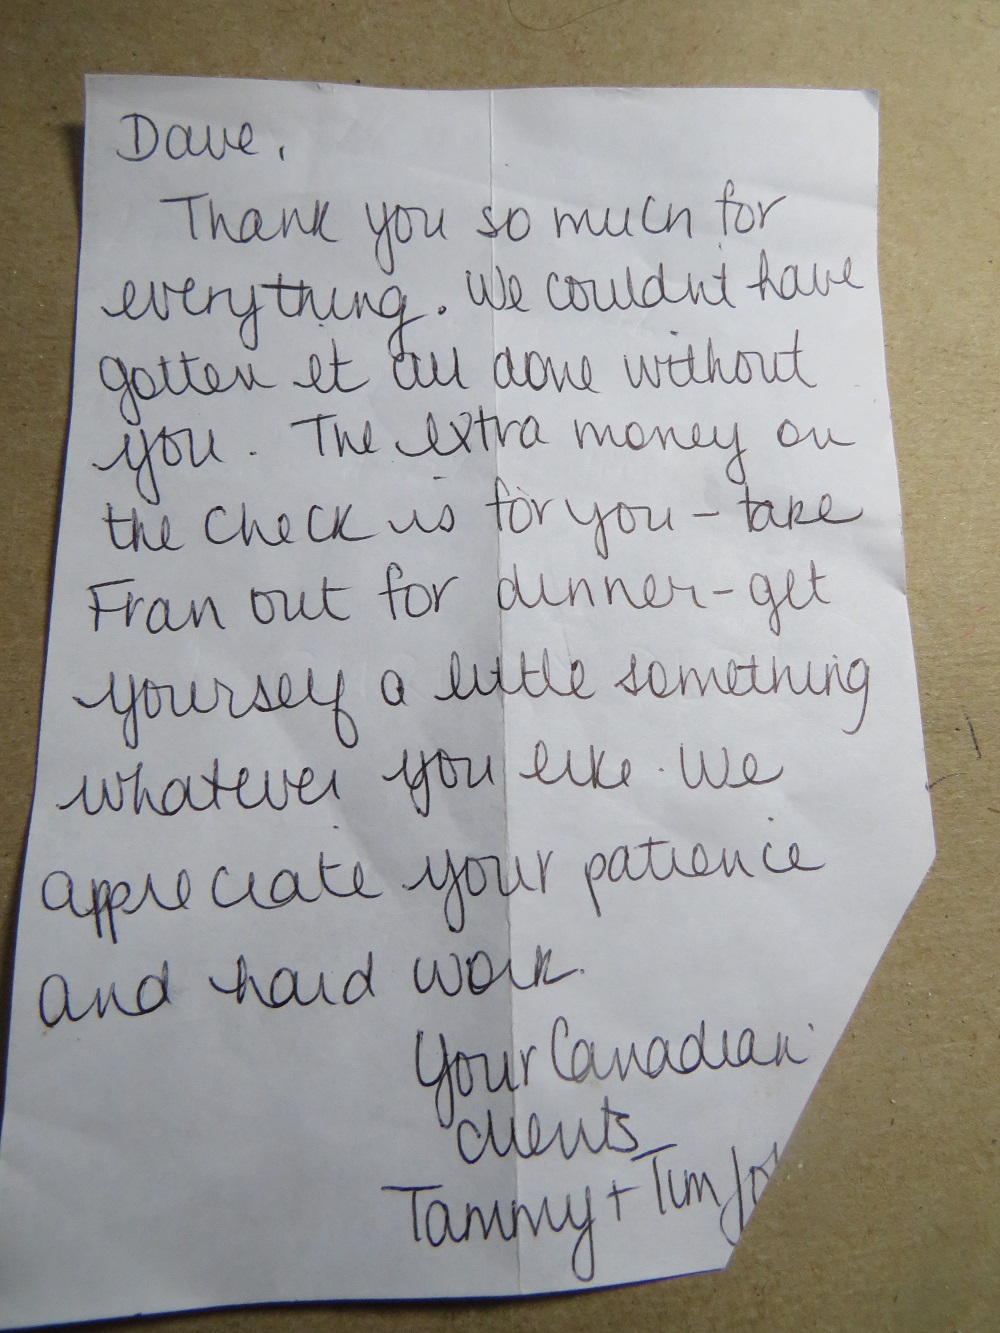 Dave,
Thank you so much for
everything. We couldnt have
gotten it all done without
you. The extra money on
the check is for you - take
Fran out for dinner - get
yourself a little something
whatever you like. We
appreciate your patience
and hard work.
Your Canadian
clients
Tammy + Tim